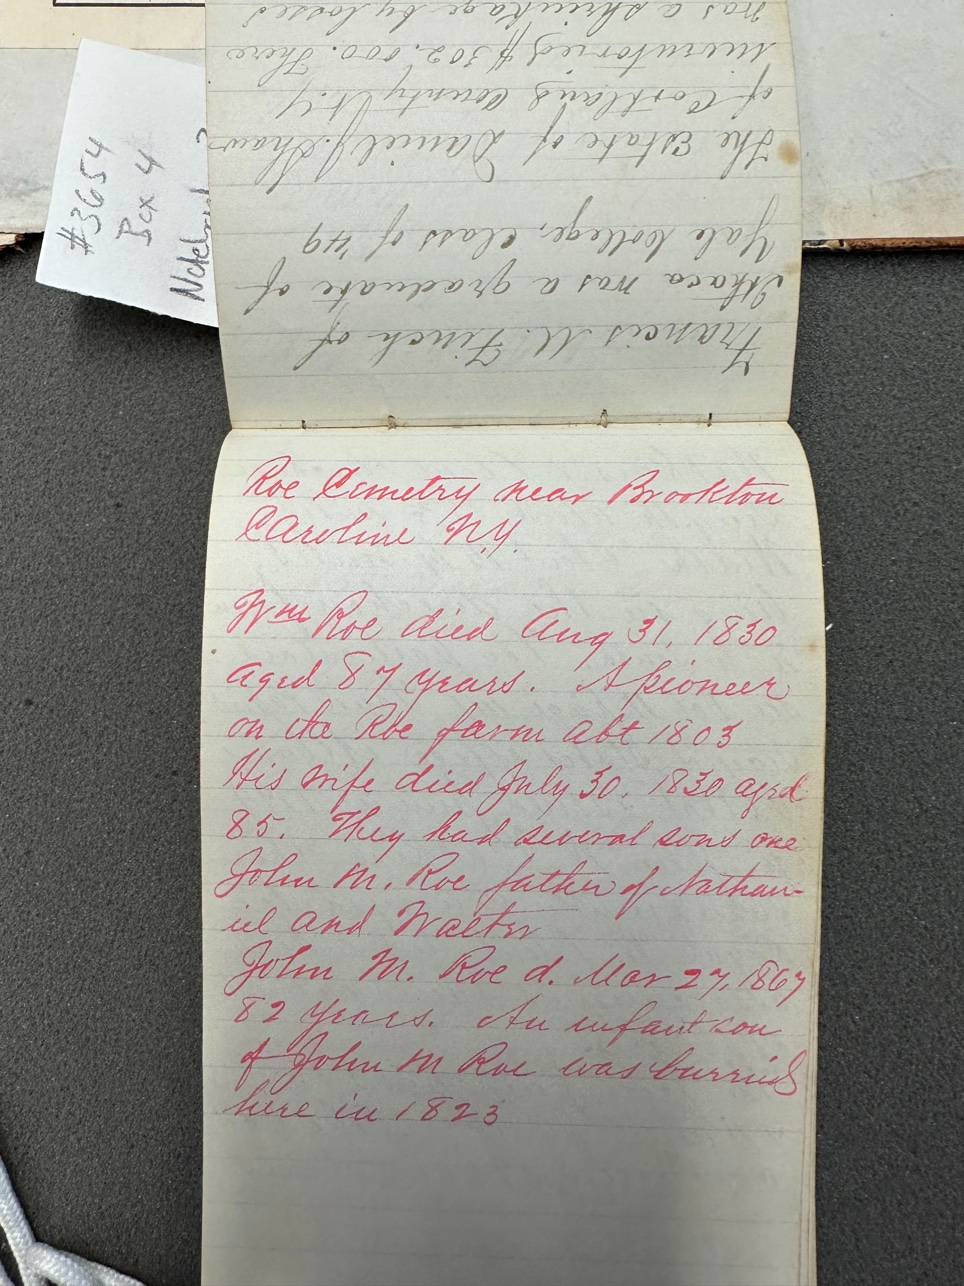 #3654
Box 4
Francis M. Finch of
Ithaca was a graduate of
Yale College, Class of 49
The Estate of Daniel J. Shaw
of Cortland County N.Y.
inventoried $302.000. There
was a shrinkage by losses
Roe Cemetry near Brookton
Caroline N.Y.
Wm Roe died Aug 31, 1830
aged 87 years. A pioneer
on the Roe farm abt 1803
His wife died July 30, 1830 aged
85. They had several sons one
John M. Roe father of Nathan-
iel and Walter
John M. Roe d. Mar 27, 1867
82 years. An infant son
of John M Roe was burried
here in 1823